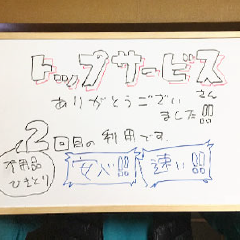 トップサービスさん
ありがとうござい
ました!!
2回目の利用です
不用品
ひきとり
安心!!
速い!!